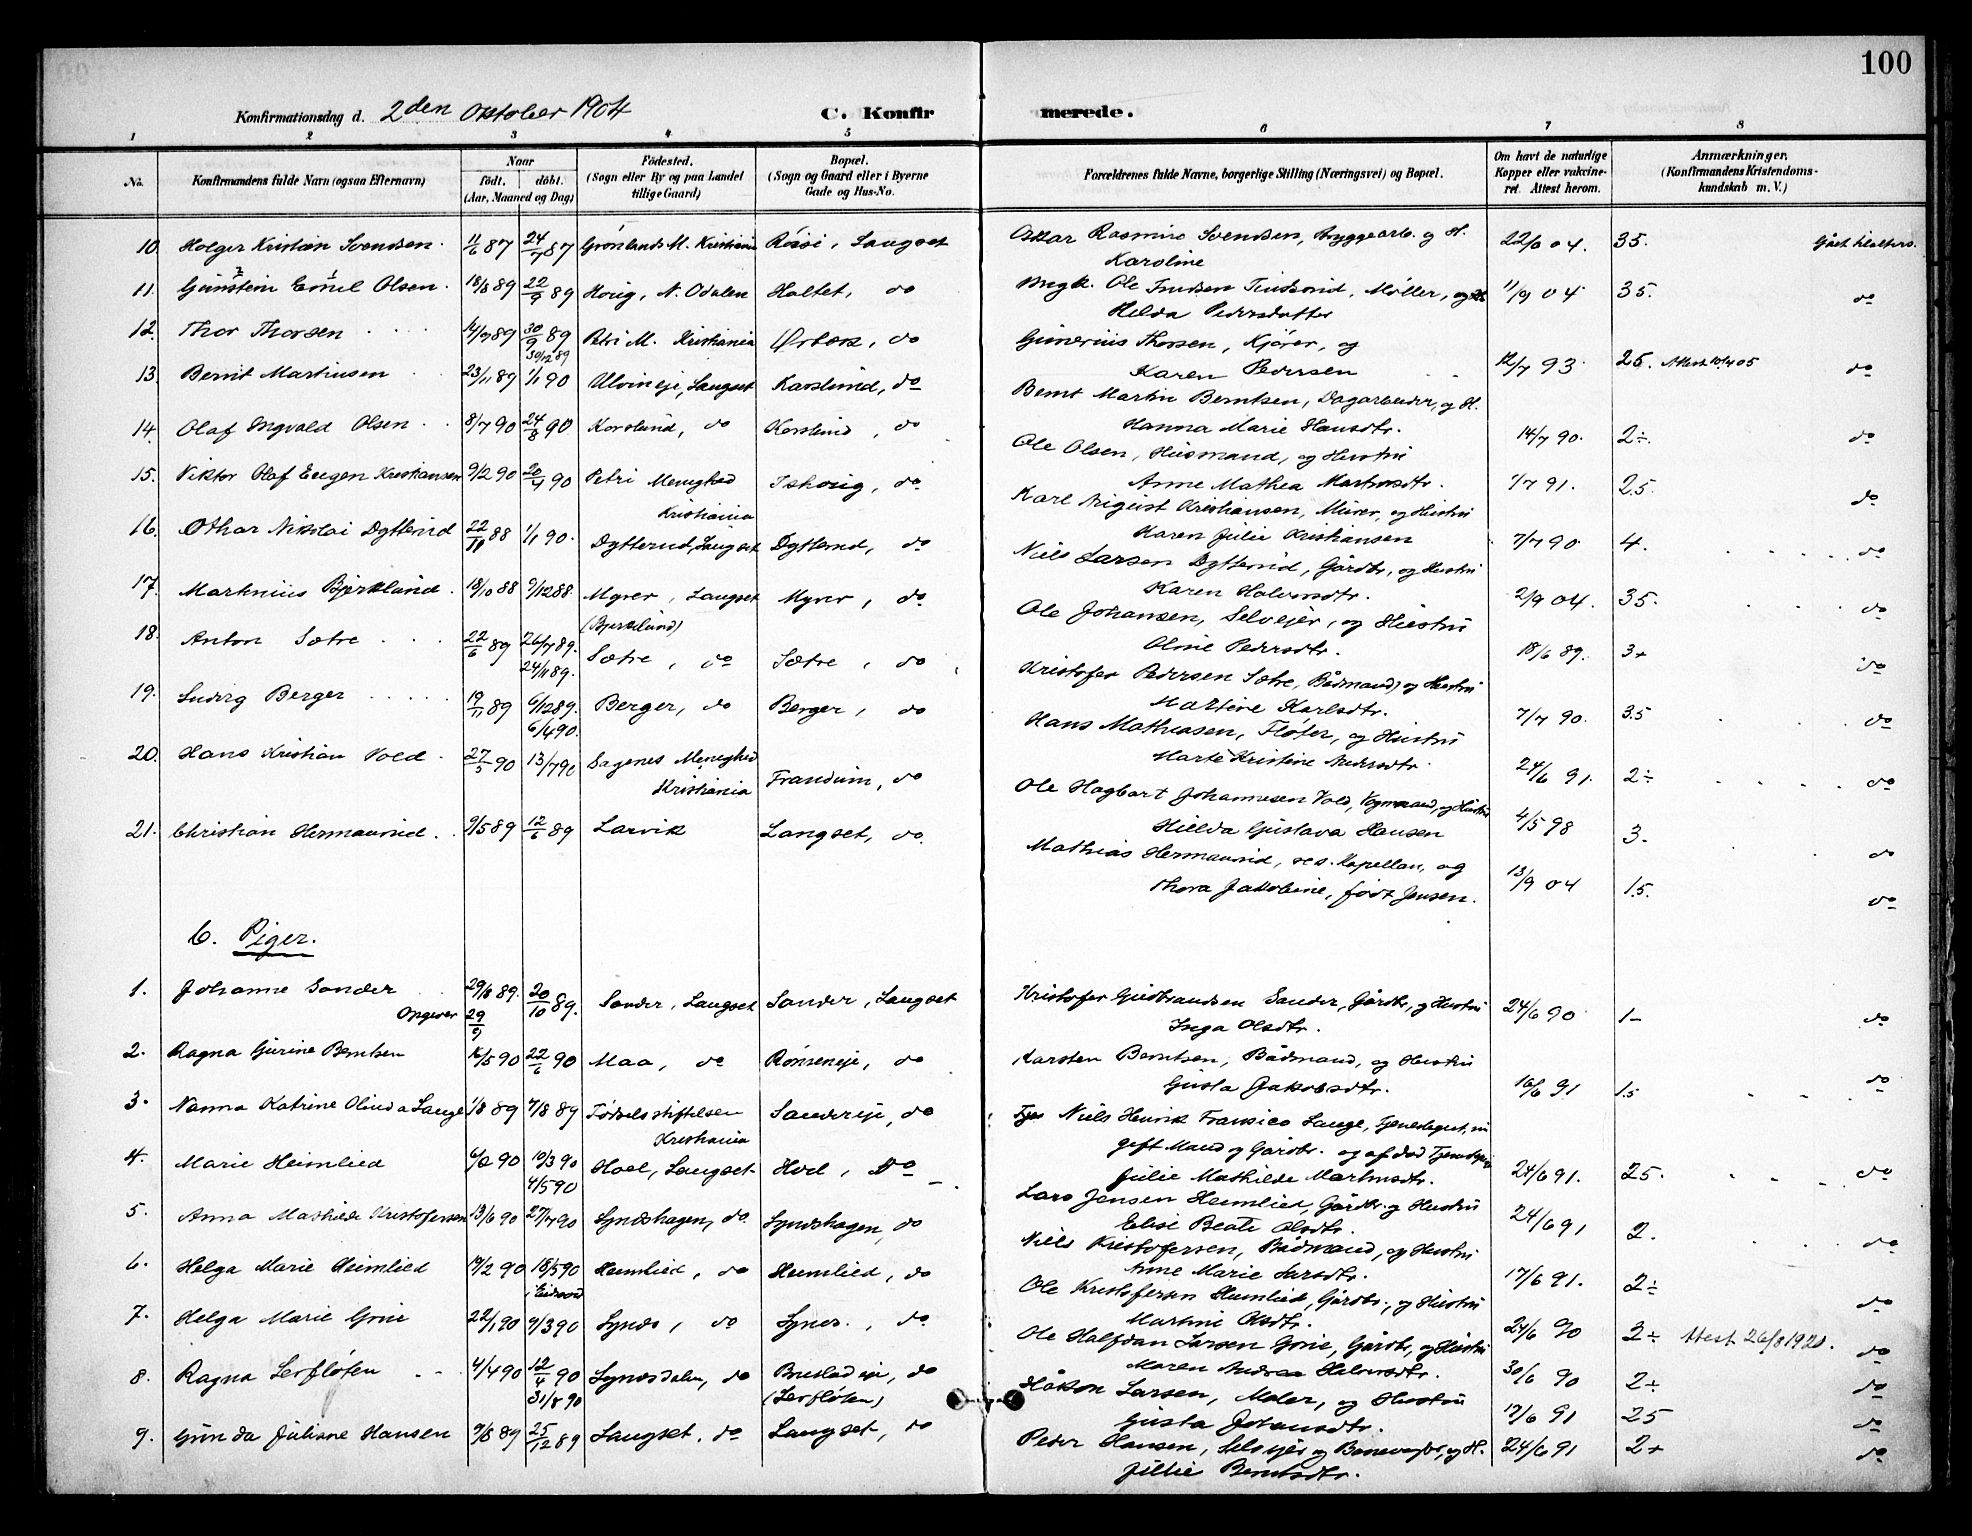 100
Konfirmationsdag d. 2den Oktober 1904
C. Konfirmerede.
1 2 3 4 5 6 7 8
No.
Konfirmandens fulde Navn (ogsaa Efternavn)
Naar
født. døbt.
(Aar, Maaned og Dag)
Fødested.
(Sogn eller By og paa Landet tillige Gaard)
Bopæl.
(Sogn og Gaard eller i Byerne Gade og Hus-No.
Forældrenes fulde Navne, borgerlige Stilling (Næringsvei) og Bopæl.
Om havt de naturlige Kopper eller vakcineret. Attest herom.
Anmærkninger.
(Konfirmandens Kristendomskundskab m. V.)
10. Holger Kristian Svendsen 11/6 87 24/7 87 Grønlands M. Kristiania Røisi, Langset
Oskar Rasmus Svendsen, Byggearb. og H. Karoline 22/6 04. 35. Gået til alters.
11. Gunstein Emil Olsen 18/8 89 22/9 89 Horig, N. Odalen Haltet, do
Ungk. Ole Knudsen, Møller, og Helda Pedersdatter 11/9 04 35. do
12. Thor Thorsen 14/9 89 30/9 89 30/12 89 Petri M. Kristiania Ørbæk, do
Gunerius Thorsen, Kjører, og Karen Pedersen 12/7 93 25. Attest 10/4 05 do
13. Bernt Martinsen 23/11 89 1/1 90 Ulvineje, Langset Karslund, do
Bernt Martin Berntsen, Dagarbeider, og H. Hanna Marie Hansdtr. 14/7 90. 2÷. do
14. Olaf Ingvald Olsen 8/7 90 24/8 90 Korslund, do Korslund, do
Ole Olsen, Husmand, og Hustru Anne Mathea Martinsdtr. 1/7 91. 2.5. do
15. Viktor Olaf Eugen Kristiansen 9/2 90 20/4 90 Petri Menighed Kristiania Ishoug, do
Karl August Kristiansen, Murer, og Hustru Karen Julie Kristiansen 7/7 90 4. do
16. Othar Nikolai Dytterud 22/11 88 1/1 90. Dytterud, Langset Dytterud, do
Niels Larsen Dytterud, Gårdbr., og Hustru Karen Halvorsdtr. 2/9 04. 35. do
17. Martinius Bjerklund 18/10 88 9/12 88. Myrer, Langset (Bjerklund) Myrer, do
Ole Johansen, Selvejer, og Hustru Oline Pedersdtr. 18/6 89. 3+ do
18. Anton Sætre 22/6 89 26/7 89. 24/11 89. Sætre, do Sætre, do
Kristofer Pedersen Sætre, Bådmand, og Hustru Martine Karlsdtr. 7/7 90. 3.5 do
19. Ludvig Berger 19/11 89 6/12 89. 6/4 90. Berger, do Berger, do
Hans Mathiasen, Fløter, og Hustru Marte Kristine Andersdtr. 24/6 91. 2÷ do
20. Hans Kristian Vold 27/5 90 13/7 90 Sagenes Menighed Kristiania Frandum, do
Ole Hagbart Johannesen Vold, Vognmand, og Hustru Hielda Gustava Hansen 4/5 98 3. do
21. Christian Hermanrud. 9/5 89 12/6 89 Larvik Langset, do
Mathias Hermanrud, res. Kapellan, og Thora Jakobine, født Jensen. 13/9 04 1.5. do
b. Piger.
1. Johanne Sander Opgiver 29/8 89. 29/9 20/10 89. Sander, Langset Sander, Langset
Kristofer Gudbrandsen Sander, Gårdbr., og Hustru Inga Olsdtr. 24/6 90 1- do
2. Ragna Gurine Berntsen 16/5 90 22/6 90 Maa, do Rønseneje, do
Karsten Berntsen, Bådmand, og Hustru Gusta Jakobsdtr. 16/6 91 1.5 do
3. Nanna Katrine Olinda Lange 1/8 89 7/8 89 Fødselsstiftelsen Kristiania Sandereje, do
Niels Henrik Fransico Lange, Tjenestegut, nu gift Mand og Gårdbr. og afdød Tjenestepige Julie Mathilde Martinsdtr. 24/6 91. 25. do
4. Marie Heimlied 6/2 90 10/3 90 4/5 90 Hoel, Langset Hoel, Do
Lars Jensen Heimlied, Gårdbr. og Hustru Elise Beate Olsdtr. 24/6 91 2. do
5. Anna Mathilde Kristofersen 13/6 90 27/7 90 Lyndshagen, do. Lyndshagen, do
Niels Kristofersen, Bådmand, og Hustru Anne Marie Larsdtr. 17/6 91. 2÷ do
6. Helga Marie Heimlied 19/2 90 18/5 90 i Eidsvold Heimlied, do Heimlied, do
Ole Kristofersen Heimlied, Gårdbr., og Hustru Martine Olsdtr. 24/6 90 2÷ Attest 26/8 1920. do
7. Helga Marie Grue 22/1 90 9/3 90 Lynds, do Lynds., do
Ole Halfdan Larsen Grue, Gårdbr., og Hustru Maren Andrea Halvorsdtr. 30/6 90 2÷ do
8. Ragna Lerfløten 4/4 90 12/4 90 31/8 90 Lyndsdalen, do Brustad eje, do (Lerfløten)
Håkon Larsen, Maler, og Hustru Gusta Johansdtr. 17/6 91 25 do
9. Gunda Juliane Hansen 9/8 89 25/12 89 Langset, do Langset, do
Peder Hansen, Selvejer og Banevogter, og H. Jullie Berntsdtr. 24/6 91 2+ do